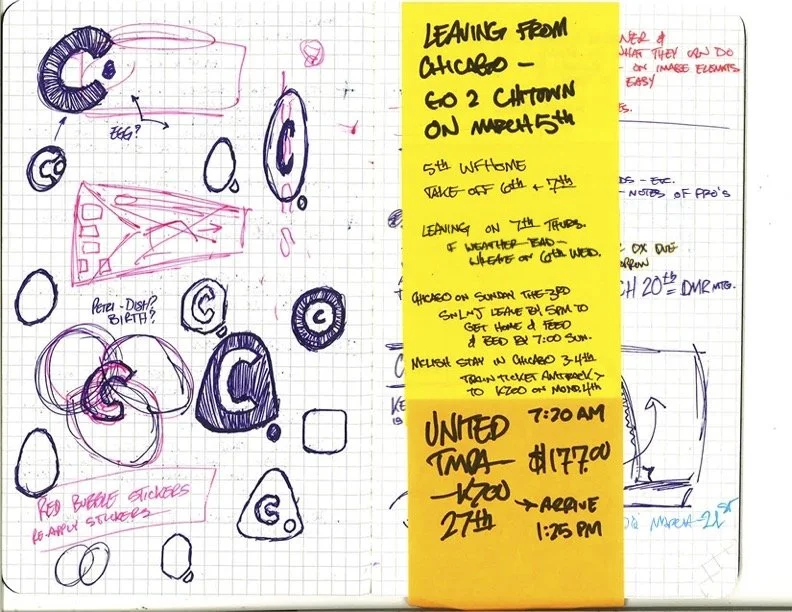 C
EGG?
C
C
C
C
PETRI-DISH?
BIRTH?
C
C
C
RED BUBBLE STICKERS
RE-APPLY STICKERS
LEAVING FROM
CHICAGO –
GO 2 CHTOWN
ON MARCH 5th
5th WFHOME
TAKE OFF 6th + 7th
LEAVING ON 7th THURS.
IF WEATHER BAD –
LEAVE ON 6th WED.
CHICAGO ON SUNDAY THE 3RD
LEAVE BY 5PM TO
GET HOME & FEED
& BED BY 7:00 SUN.
STAY IN CHICAGO 3-4th
TRAIN TICKET AMTRACK >
TO KZOO ON MOND. 4th
UNITED 7:20 AM
TMPA – $177.00
– KZOO → ARRIVE
27th 1:25 PM
NER &
WHAT THEY CAN DO
– ON IMAGE ELEMENTS
EASY
ES.
DS – ETC.
– NOTES OF PRO'S
DUE
CH 20th = DMR MTG.
MARCH 21ST